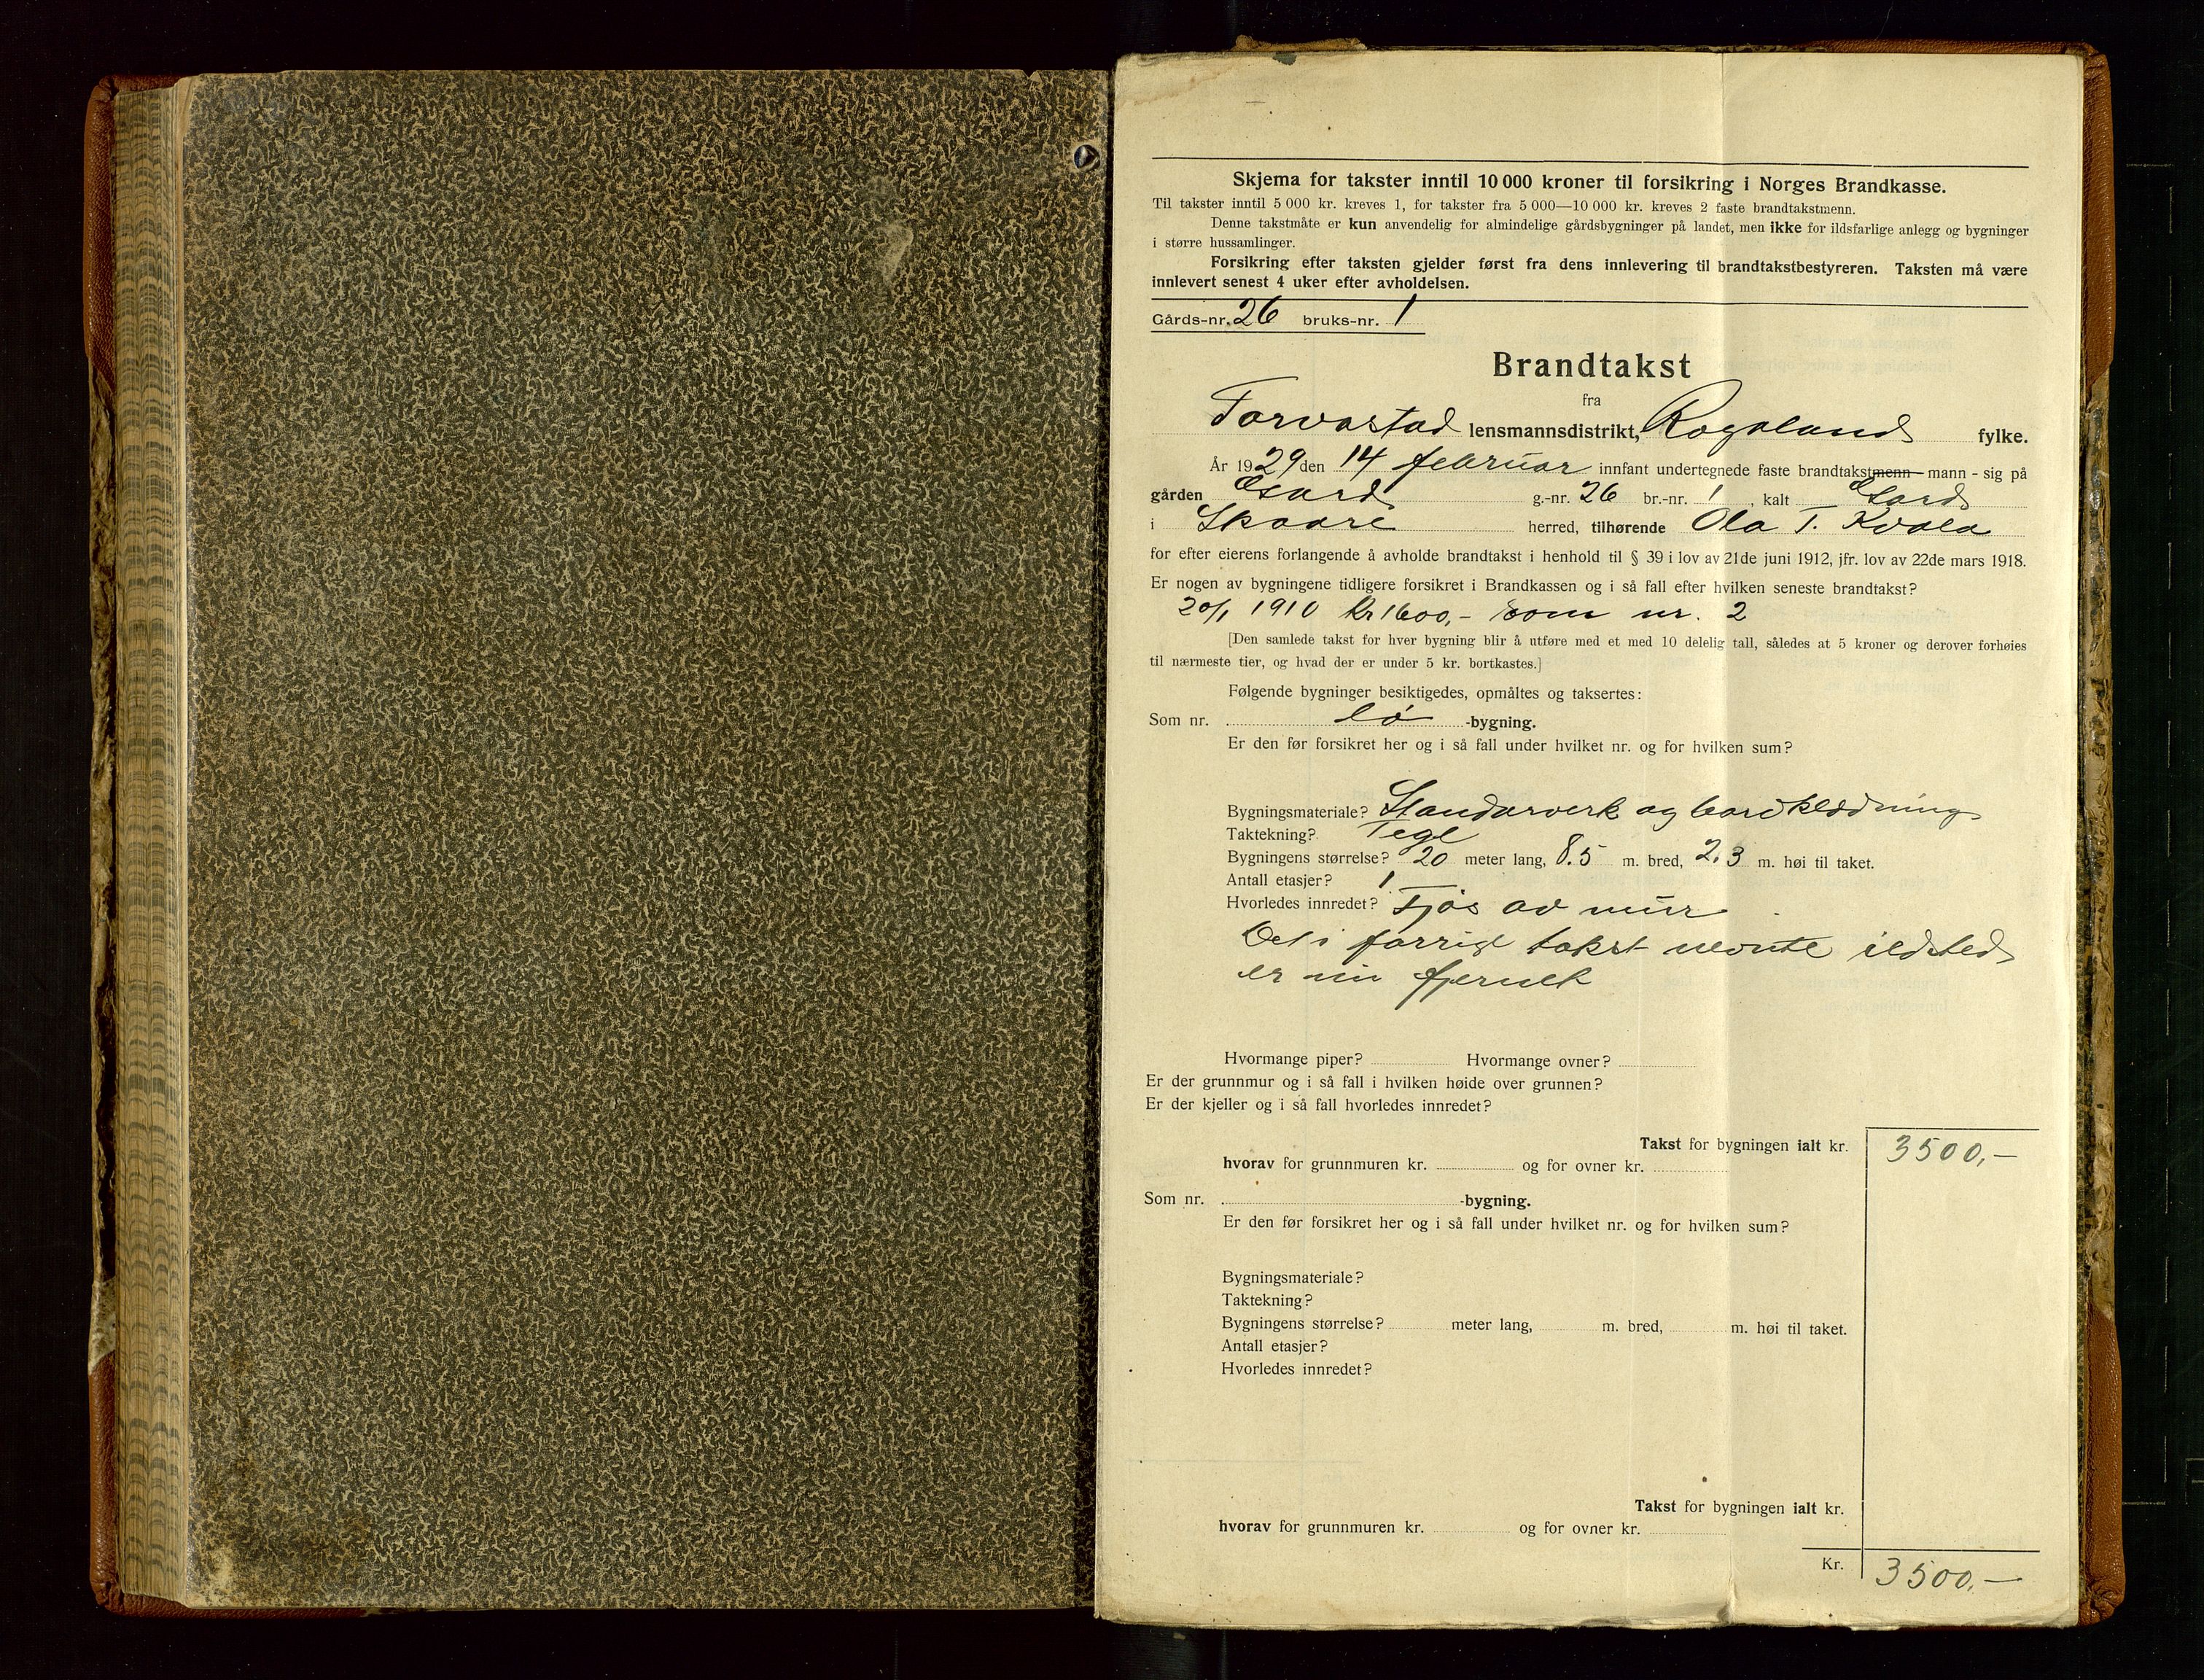 Skjema for takster inntil 10 000 kroner til forsikring i Norges Brandkasse.
Til takster inntil 5 000 kr. kreves 1, for takster fra 5 000—10 000 kr. kreves 2 faste brandtakstmenn.
Denne takstmåte er kun anvendelig for almindelige gårdsbygninger på landet, men ikke for ildsfarlige anlegg og bygninger
i større hussamlinger.
Forsikring efter taksten gjelder først fra dens innlevering til brandtakstbestyreren. Taksten må være
innlevert senest 4 uker efter avholdelsen.
Gårds-nr. 26 bruks-nr. 1
Brandtakst
fra
Torvastad lensmannsdistrikt, Rogaland fylke.
År 1929 den 14 februar innfant undertegnede faste brandtakstmenn - mann - sig på
gården Gard g.-nr. 26 br.-nr. 1, kalt Gard
i Skaare herred, tilhørende Ola T. Kvala
for efter eierens forlangende å avholde brandtakst i henhold til § 39 i lov av 21de juni 1912, jfr. lov av 22de mars 1918.
Er nogen av bygningene tidligere forsikret i Brandkassen og i så fall efter hvilken seneste brandtakst?
20/1 1910 kr 1600,- som nr. 2
[Den samlede takst for hver bygning blir å utføre med et med 10 delelig tall, således at 5 kroner og derover forhøies
til nærmeste tier, og hvad der er under 5 kr. bortkastes.]
Følgende bygninger besiktigedes, opmåltes og taksertes:
Som nr. lø -bygning.
Er den før forsikret her og i så fall under hvilket nr. og for hvilken sum?
Bygningsmateriale? Standarverk og bordklædning
Taktekning? Tegl
Bygningens størrelse? 20 meter lang, 8.5 m. bred, 2.3 m. høi til taket.
Antall etasjer? 1
Hvorledes innredet? Fjøs av mur
Det i forrige takst nevnte ildsted
er nu fjernet
Hvormange piper? Hvormange ovner?
Er der grunnmur og i så fall i hvilken høide over grunnen?
Er der kjeller og i så fall hvorledes innredet?
Takst for bygningen ialt kr. 3500,-
hvorav for grunnmuren kr. og for ovner kr.
Som nr. -bygning.
Er den før forsikret her og i så fall under hvilket nr. og for hvilken sum?
Bygningsmateriale?
Taktekning?
Bygningens størrelse? meter lang, m. bred, m. høi til taket.
Antall etasjer?
Hvorledes innredet?
Takst for bygningen ialt kr.
hvorav for grunnmuren kr. og for ovner kr.
Kr. 3500,-